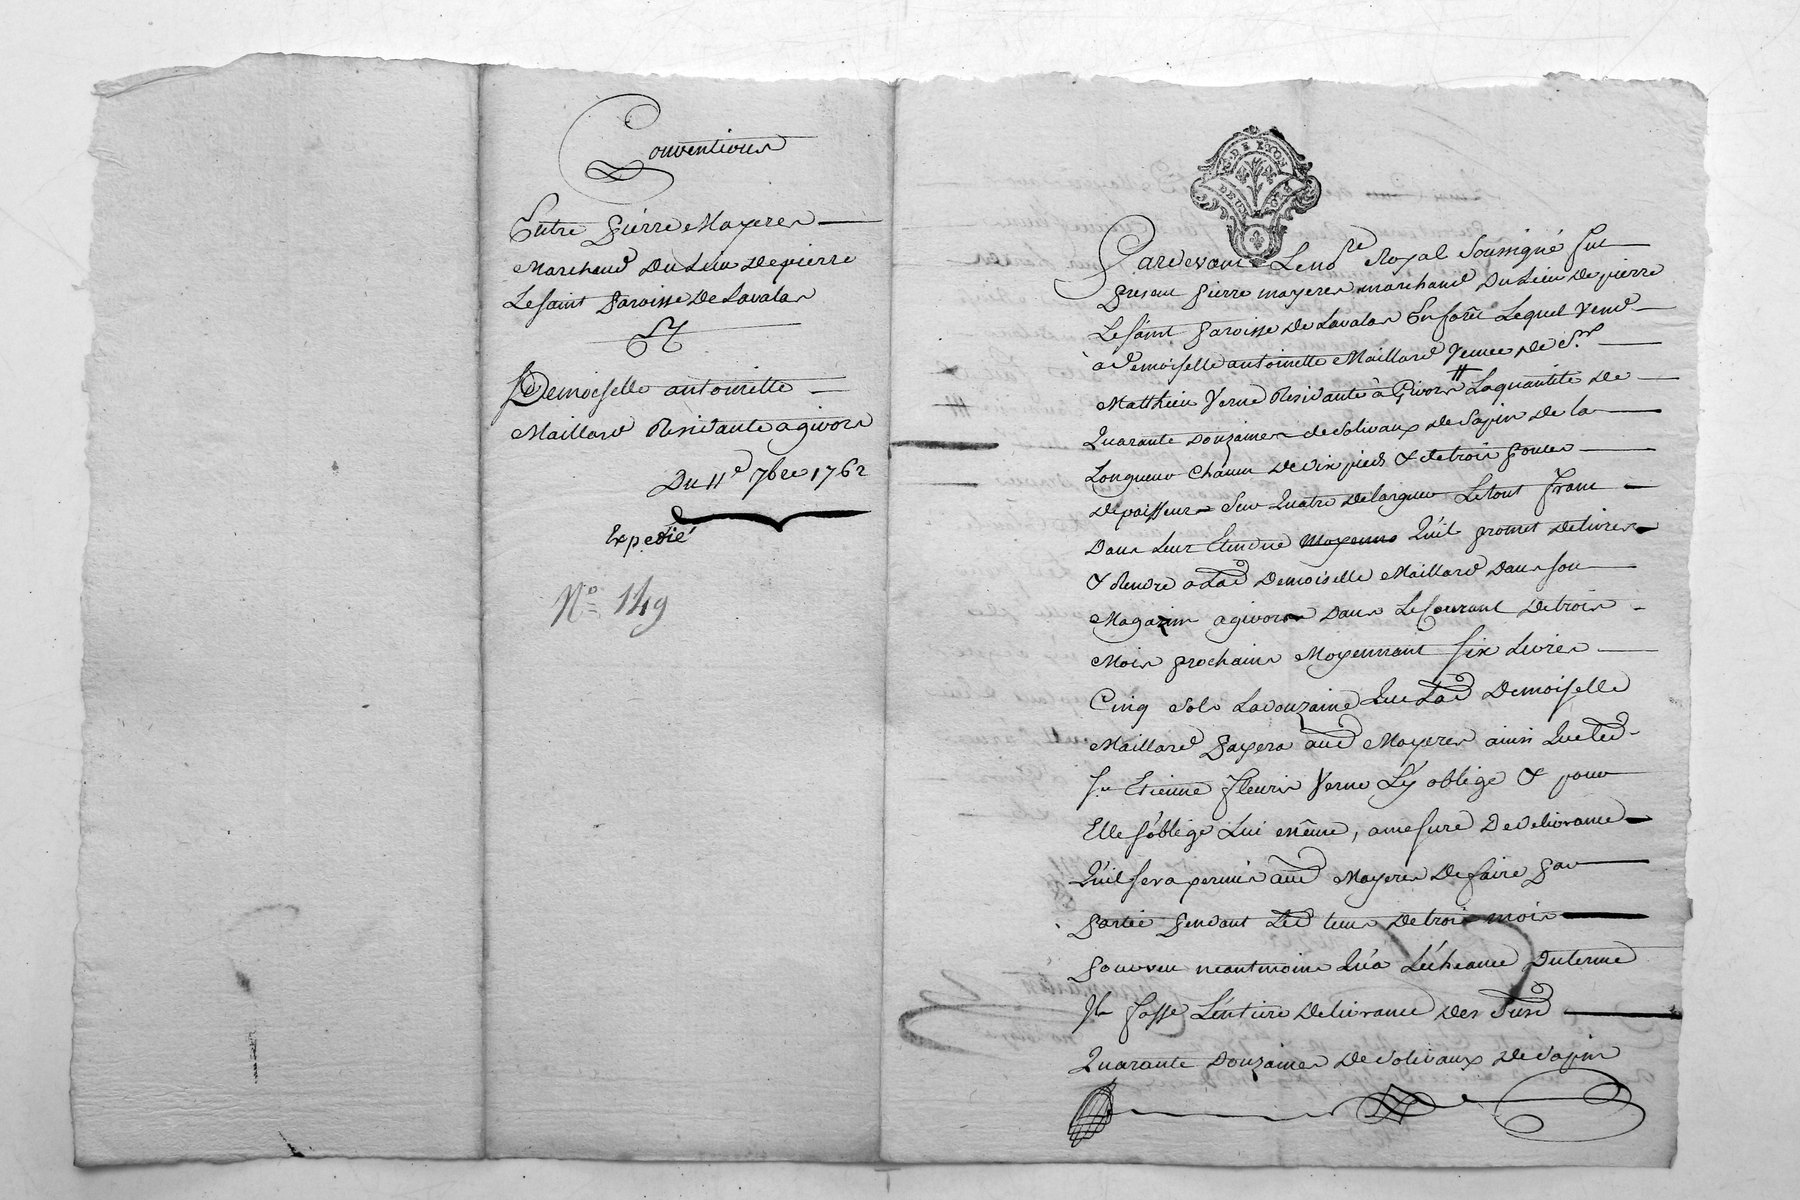 Conventions
Entre Pierre Mayeres
Marchand Du Lieu De pierre
Le Saint Paroisse De Lavalas
Et
Demoiselle antoinette
Maillard Residante a givors
Du 11e 7bre 1762
Expedié
No 149
G. DE LYON
DEUX SOLS
Pardevant Le nore Royal Soussigné fut
present pierre mayeres marchand Du Lieu De pierre
Le Saint Paroisse De Lavalas En forêt Lequel Vend
à Demoiselle antoinette Maillard Veuve de Sr
Matthieu Verne Residante à Givors La quantité De
Quarante Douzaines de Solivaux De Sapin de la
Longueur Chacun De Dix pieds & de trois pouces
Depaisseur Sur Quatre De largeur Le tout franc
Dans Leur Etendue Quil promet De livrer
& Rendre a Lad Demoiselle Maillard Dans son
Magazin a givors Dans Le Courant De trois
Mois prochains Moyennant Six Livres
Cinq Sols La Douzaine Que Lad Demoiselle
Maillard payera aud Mayeres ainsi Que Led
Sr Etienne Fleuris Verne L'y oblige & pour
Elle s'oblige Lui même, a mesure De Delivrance
Quil sera permis aud Mayeres De faire par
partie pendant Led tems De trois mois
pourveu neantmoins Qu'a L'écheance Du terme
Il fasse L'entiere Delivrance Des Susd
Quarante Douzaines De Solivaux De Sapin